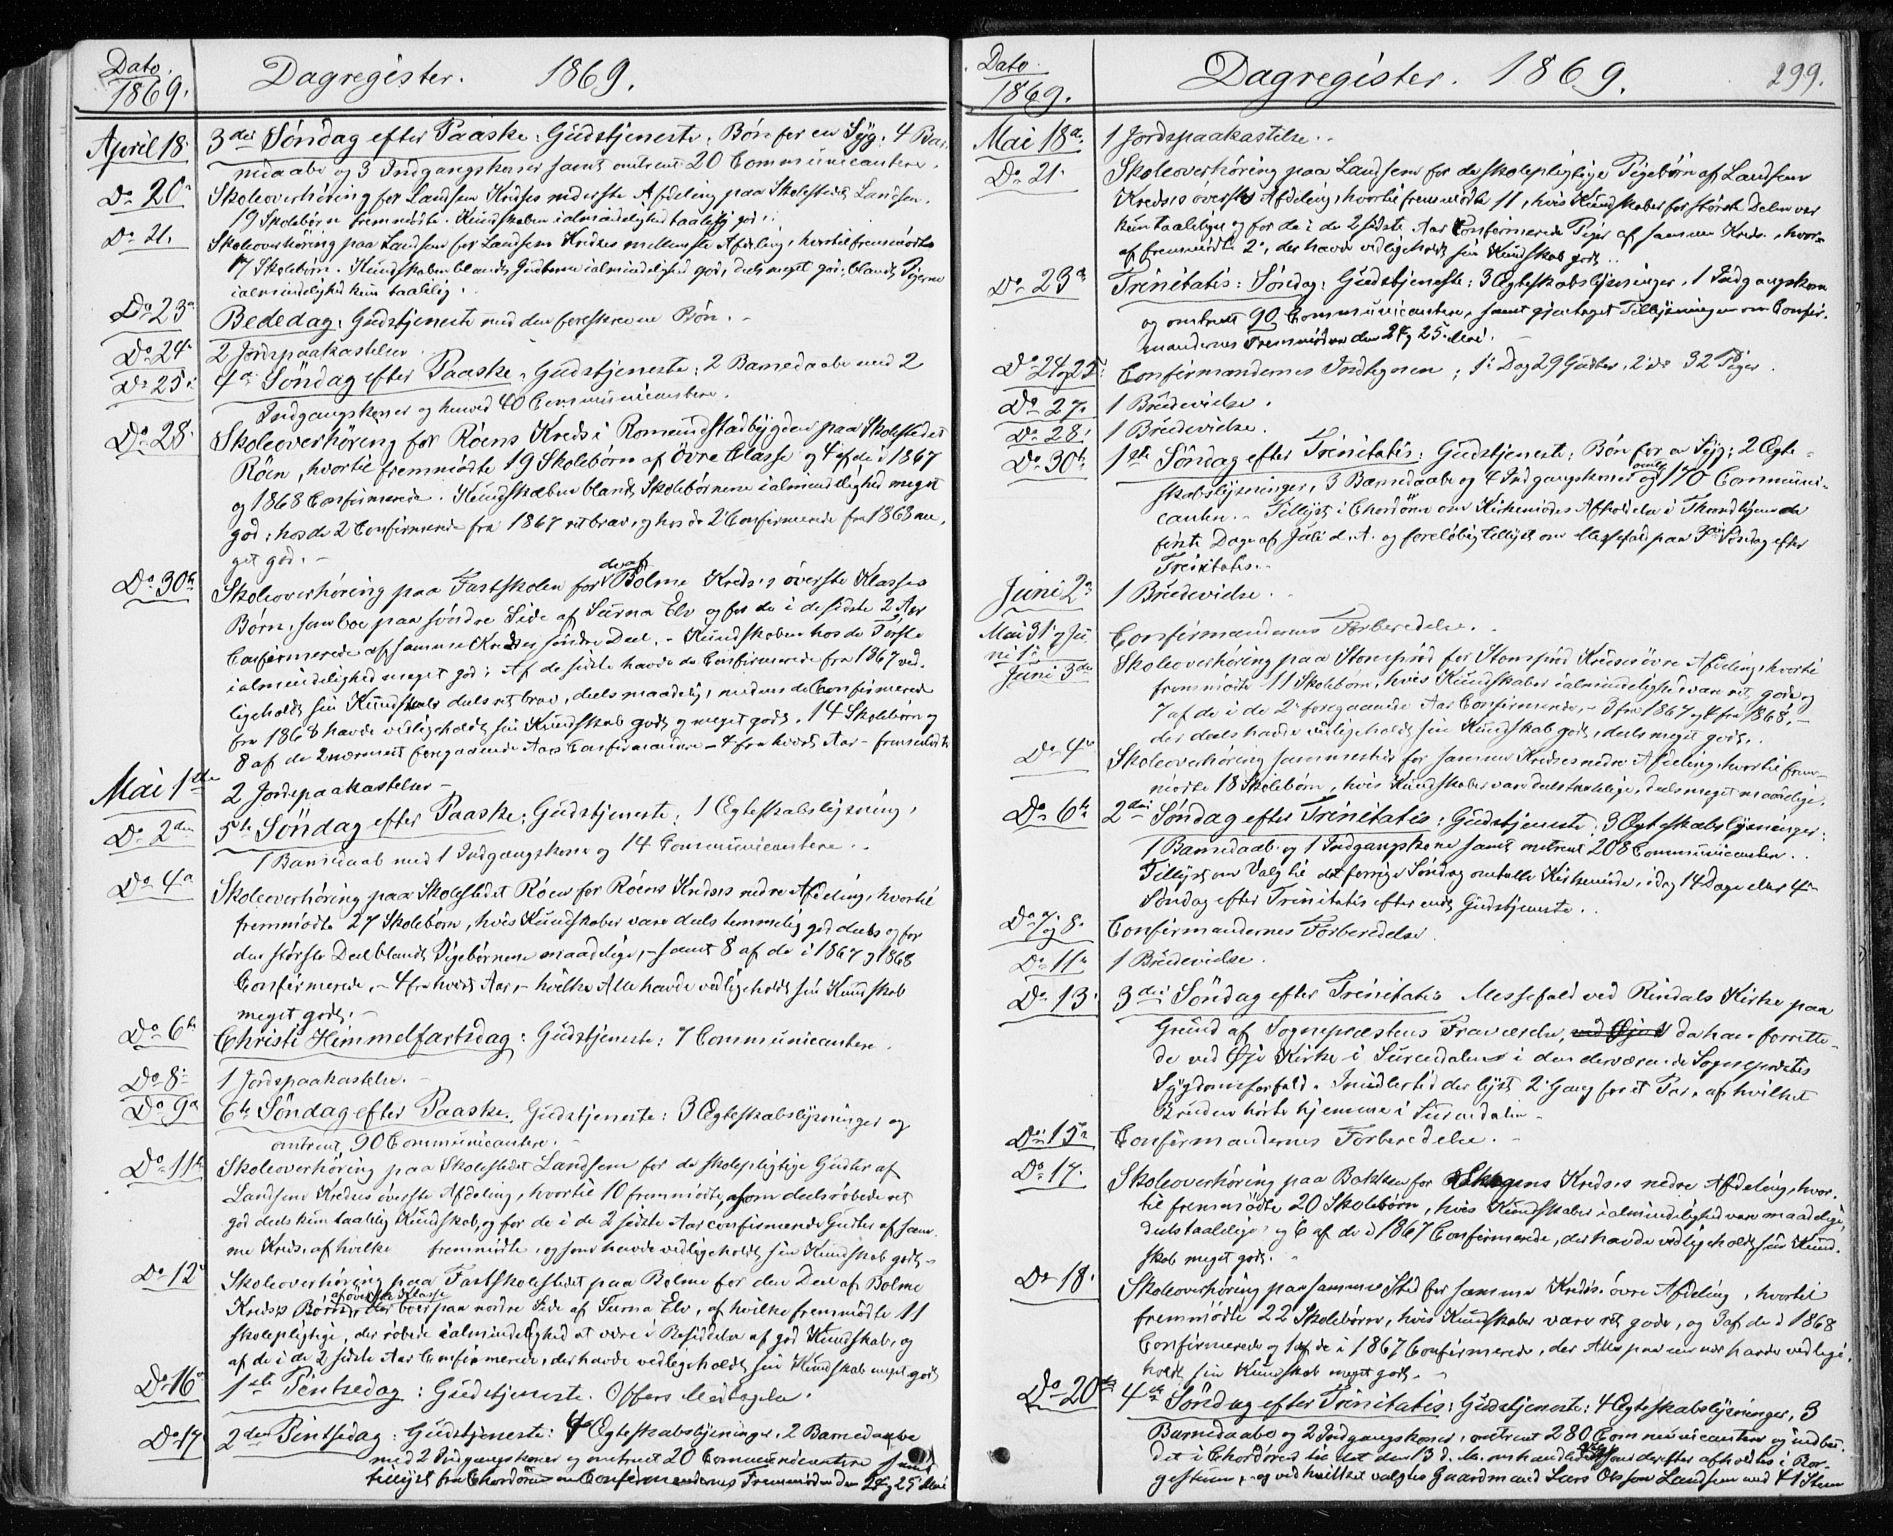 Dato.
1869.
Dagregister. 1869.
April 18. 3die Søndag efter Paaske: Gudstjeneste. Bøn for en Syg. 4 Bar-
nedaabe og 3 Indgangskoner samt omtrent 20 Communicantere.
Do 20. Skoleoverhøring for Landsem Kredses nederste Afdeling paa Skolestedet Landsem.
19 Skolebørn fremmødte. Kundskaben ialmindelighed taalelig god.
Do 21. Skoleoverhøring paa Landsem for Landsem Kredses mellemste Afdeling, hvortil fremmødte
17 Skolebørn. Kundskaben blandt Gutterne ialmindelighed god, deels meget god; blandt Pigerne
ialmindelighed kun taalelig.
Do 23. Bededag: Gudstjeneste med den foreskrevne Bøn.
Do 24. 2 Jordspaakastelser.
Do 25. 4de Søndag efter Paaske. Gudstjeneste; 2 Barnedaabe med 2
Indgangskoner og henved 40 Communicantere.
Do 28. Skoleoverhøring for Röens Kreds i Romundstadbygden paa Skolestedet
Röen, hvortil fremmødte 19 Skolebørn af övre Classe og 4 af de i 1867
og 1868 Confirmerede. Kundskaben blandt Skolebørnene ialmindelighed meget
god; hos de 2 Confirmerede fra 1867 ret brav, og hos de 2 Confirmerede fra 1868 me-
get god.
Do 30te Skoleoverhøring paa Fastskolen for den af Bolme Kredses överste Klasses
Børn, som boe paa søndre Side af Surna Elv og for de i de sidste 2 Aar
Confirmerede af samme Kredses søndre Deel. Kundskaben hos de Første
ialmindelighed meget god; Af de sidste havde de Confirmerede fra 1867 ved-
ligeholdt sin Kundskab deels ret brav, deels maadelig, medens de Confirmerede
fra 1868 havde vedligeholdt sin Kundskab godt og meget godt. 14 Skolebørn og
8 af de 2 nærmest foregaaende Aars Confirmander - 4 fra hvert Aar - fremmødte
Mai 1ste 2 Jordspaakastelser
Do 2den 5te Søndag efter Paaske: Gudstjeneste; 1 Ægteskabslysning,
1 Barnedaab med 1 Indgangskone og 14 Communicantere.
Do 4. Skoleoverhøring paa Skolestedet Röen for Röens Kredses nedre Afdeling, hvortil
fremmødte 27 Skolebørn, hvis Kundskaber vare deels temmelig god deels og for
den største Deel blandt Pigebørnene maadelige, - samt 8 af de i 1867 og 1868
Confirmerede, - 4 fra hvert Aar, - hvilke Alle havde vedligeholdt sin Kundskab
meget godt.
Do 6te Christi Himmelfartsdag: Gudstjeneste: 7 Communicantere.
Do 8. 1 Jordspaakastelse.
Do 9. 6te Søndag efter Paaske. Gudstjeneste: 3 Ægteskabslysninger og
omtrent 90 Communicantere.
Do 11te Skoleoverhøring paa Skolestedet Landsem for de skolepligtige Gutter af
Landsem Kredses överste Afdeling, hvortil 10 fremmødte, som deels røbede ret
god deels kun taalelig Kundskab, og for de i de 2 sidste Aar confirmerede Gutter af sam-
me Kreds, af hvilke fremmødte, og som havde vedligeholdt sin Kundskab godt.
Do 12. Skoleoverhøring paa Fastskolestedet paa Bolme for den Deel af Bolme
Kredses Børn af överste Klasse, der boer paa nordre Side af Surna Elv, af hvilke fremmødte 11
skolepligtige, der røbede ialmindelighed at være i Besiddelse af god Kundskab, og
af de i de 2 sidste Aar Confirmerede, der havde vedligeholdt sin Kundskab meget godt
Do 16. 1ste Pintsedag: Gudstjeneste. Offers Modtagelse.
Do 17. 2den Pintsedag: Gudstjeneste: 4 Ægteskabslysninger, 2 Barnedaabe
med 2 Indgangskoner og omtrent 20 Communicantere samt
tillyst fra Chordøren om Confirmandernes Fremmøde den 24 og 25 Mai
Dato.
1869.
Dagregister. 1869.
299.
Mai 18. 1 Jordspaakastelse.
Do 21. Skoleoverhøring paa Landsem for de skolepligtige Pigebørn af Landsem
Kredses överste Afdeling, hvortil fremmødte 11, hvis Kundskaber for største Delen var
kun taalelige, og for de i de 2 sidste Aar Confirmerede Piger af samme Kreds, hvor-
af fremmødte 2, der havde vedligeholdt sin Kundskab godt.
Do 23. Trinitatis: Søndag: Gudstjeneste: 3 Ægteskabslysninger, 1 Indgangskone
og omtrent 90 Communicantere, samt gjentaget Tillysningen om Confir-
mandernes Fremmøde den 24 og 25 Mai.
Do 24 og 25. Confirmandernes Indtegnen; 1ste Dag 29 Gutter, 2den do 32 Piger.
Do 27. 1 Brudevielse.
Do 28. 1 Brudevielse.
Do 30te 1ste Søndag efter Trinitatis: Gudstjeneste; Bøn for en Syg; 2 Ægte-
skabslysninger, 3 Barnedaabe og 4 Indgangskoner og omtr. 170 Communi-
canter. - Tillyst i Chordøren om Kirkemødes Afholdelse i Throndhjem de
første Dage af Juli d. A. og foreløbig tillyst om Messefald paa 3die Søndag efter
Trinitatis.
Juni 2. 1 Brudevielse.
Mai 31 og Ju-
ni 1. Confirmandernes Forberedelse.
Juni 3die Skoleoverhøring paa Stomprød for Stomprød Kredses øvre Afdeling, hvortil
fremmødte 11 Skolebørn, hvis Kundskaber ialmindelighed vare ret gode og
7 af de i de 2 foregaaende Aar Confirmerede, - 3 fra 1867 og 4 fra 1868, -
der deels havde vedligeholdt sin Kundskab godt, deels meget godt.
Do 4. Skoleoverhøring sammesteds for samme Kredses nedre Afdeling, hvortil frem-
mødte 18 Skolebørn, hvis Kundskaber vare deels taalelige, deels meget maadelige.
Do 6te 2den Søndag efter Trinitatis: Gudstjeneste; 3 Ægteskabslysninger;
1 Barnedaab og 1 Indgangskone samt omtrent 208 Communicanter.
Tillyst om Valg til det forrige Søndag omtalte Kirkemøde, idag 14 Dage eller 4de
Søndag efter Trinitatis efter endt Gudstjeneste.
Do 7 og 8. Confirmandernes Forberedelse
Do 11. 1 Brudevielse.
Do 13. 3die Søndag efter Trinitatis Messefald ved Rindals Kirke paa
Grund af Sognepræstens Fraværelse, da han forrette-
de ved Øje Kirke i Surendalen i den derværende Sognepræsts
Sygdomsforfald. Imidlertid der lyst 2. Gang for et Par, af hvilket
Bruden hørte hjemme i Surendalen.
Do 15. Confirmandernes Forberedelse.
Do 17. Skoleoverhøring paa Bakken for Skogens Kredses nedre Afdeling, hvor-
til fremmødte 20 Skolebørn, hvis Kundskaber ialmindelighed vare maadelige,
deels taalelige; og 6 af de i 1867 Confirmerede, der havde vedligeholdt sin Kund-
skab meget godt.
Do 18. Skoleoverhøring paa samme Sted for samme Kredses øvre Afdeling, hvortil
fremmødte 22 Skolebørn, hvis Kundskaber vare ret gode, og 3 af de i 1868
Confirmerede og 1 af de i 1867 Confirmerede, der Alle paa een nær havde vedlige-
holdt sin Kundskab meget godt.
Do 20de 4de Søndag efter Trinitatis: Gudstjeneste: 4 Ægteskabslysninger, 3
Barnedaabe og 2 Indgangskoner, omtrent 280 Communicanter og indbu-
det i Chordøren til det den 13 d. M. omhandlede Valg, som derefter afholdtes i Bor-
gestuen, - og ved hvilket valgtes Gaardmand Lars Olsson Landsem med 41 Stem